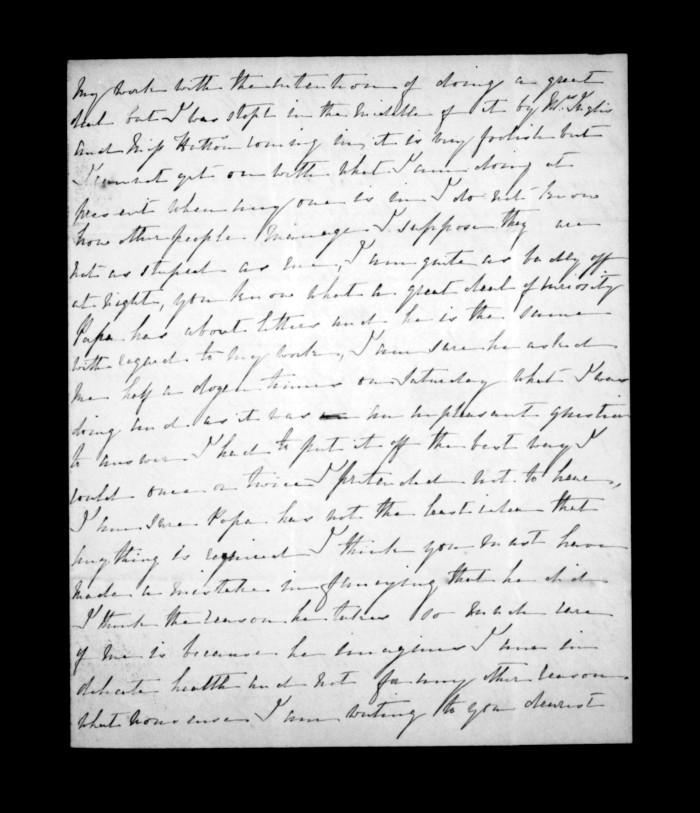 my work with the intention of doing a great
deal but I was stopt in the middle of it by Mr Inglis
and Miss Hutton coming in, it is very foolish but
I cannot get on with what I am doing at
present when any one is in I do not know
how other people manage I suppose they are
not as stupid as me, I am quite as badly off
at night, you know what a great deal of curiosity
Papa has about letters and he is the same
with regard to my work, I am sure he asked
me half a dozen times on Saturday what I was
doing and as it was an unpleasant question
to answer I had to put it off the best way I
could once or twice I pretended not to hear,
I am sure Papa has not the least idea that
anything is required I think you must have
made a mistake in fancying that he did
I think the reason he takes so much care
of me is because he imagines I am in
delicate health and not for any other reason.
what nonsense I am writing to you dearest